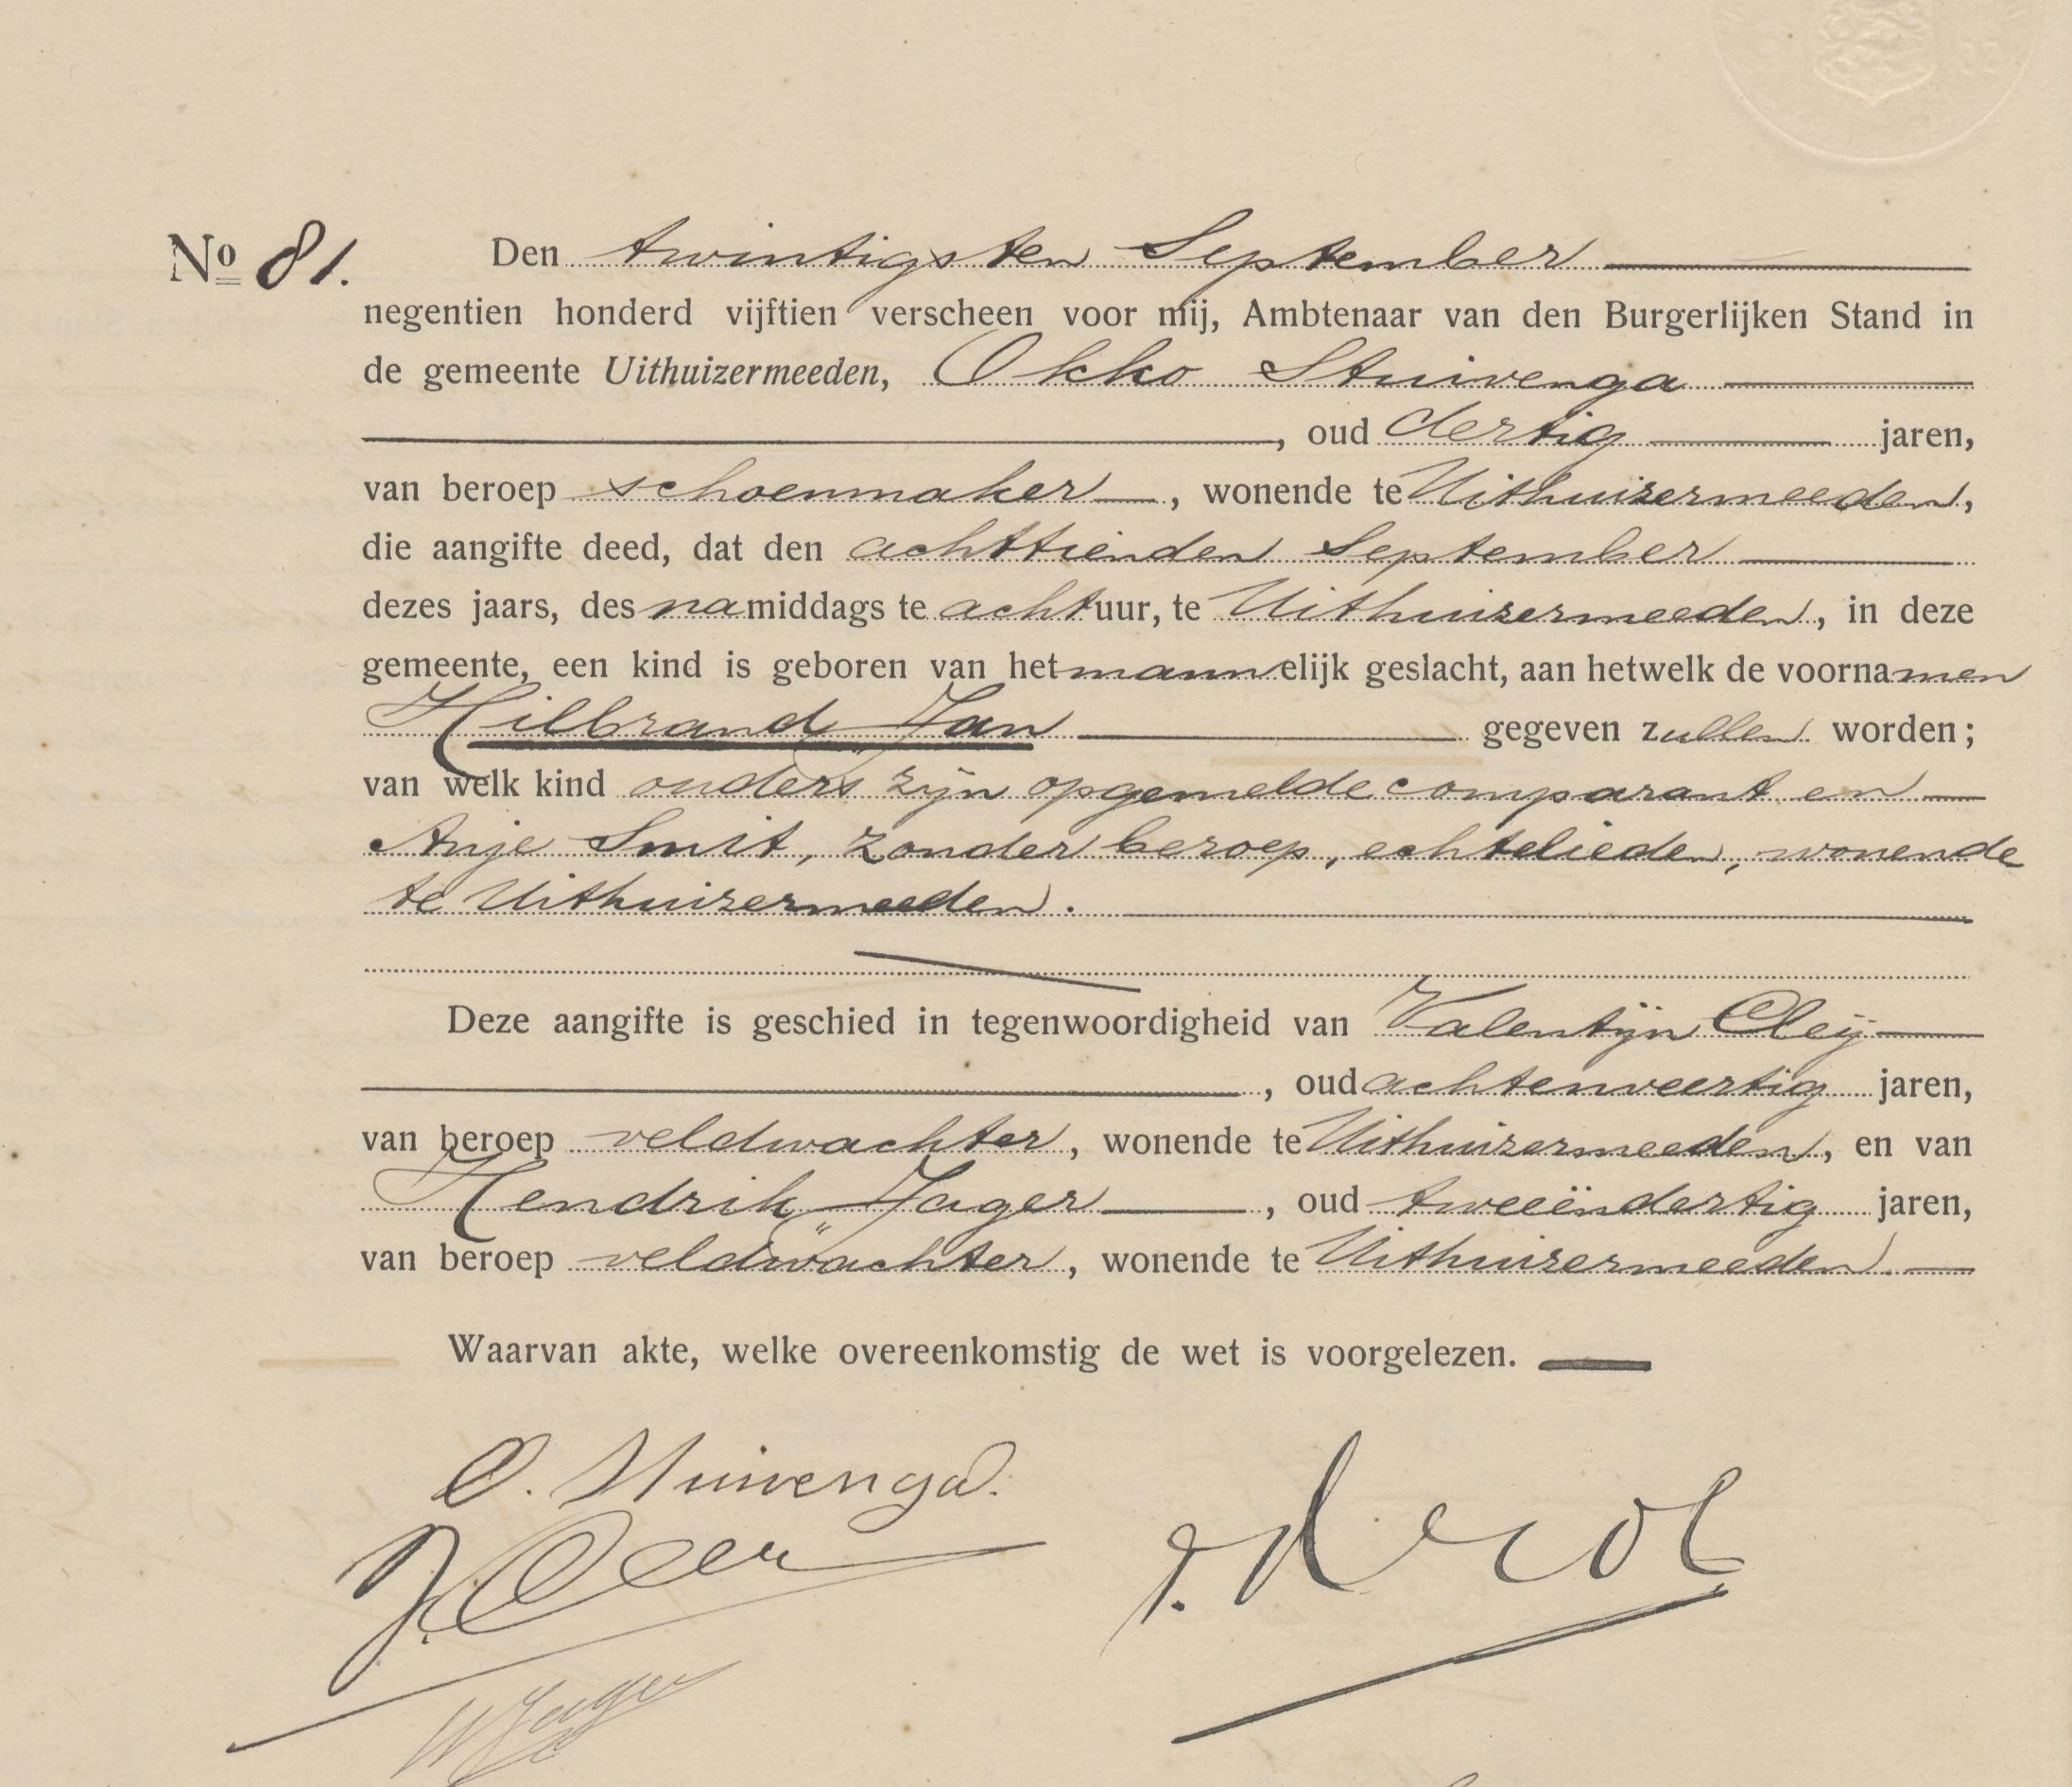 No 81. Den twintigsten September
negentien honderd vijftien verscheen voor mij, Ambtenaar van den Burgerlijken Stand in
de gemeente Uithuizermeeden, Okko Stuivenga
, oud dertig jaren,
van beroep schoenmaker, wonende te Uithuizermeeden,
die aangifte deed, dat den achttienden September
dezes jaars, des namiddags te acht uur, te Uithuizermeeden, in deze
gemeente, een kind is geboren van het mannelijk geslacht, aan hetwelk de voornamen
Hilbrand Jan gegeven zullen worden;
van welk kind ouders zijn opgemelde comparant en
Anje Smit, zonder beroep, echtelieden, wonende
te Uithuizermeeden.
Deze aangifte is geschied in tegenwoordigheid van Valentijn Cleij
, oud achtenveertig jaren,
van beroep veldwachter, wonende te Uithuizermeeden, en van
Hendrik Jager, oud tweeëndertig jaren,
van beroep veldwachter, wonende te Uithuizermeeden.
Waarvan akte, welke overeenkomstig de wet is voorgelezen.
O. Stuivenga.
Jager